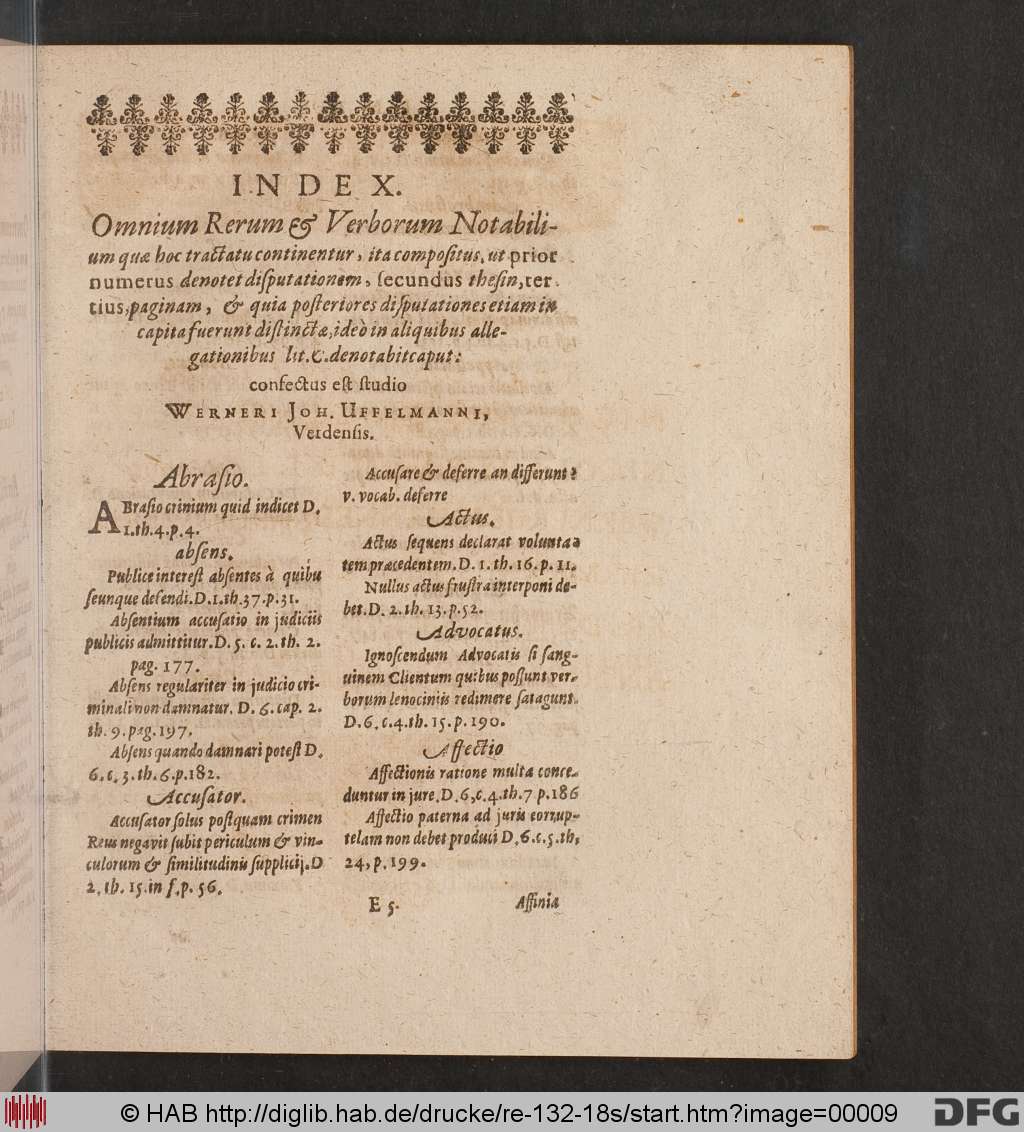 INDEX.
Omnium Rerum & Verborum Notabili-
um quæ hoc tractatu continentur, ita compositus, ut prior
numerus denotet disputationem, secundus thesin, ter
tius, paginam, & quia posteriores disputationes etiam in
capita fuerunt distinctæ, ideò in aliquibus alle-
gationibus lit. C. denotabit caput:
confectus est studio
WERNERI JOH. UFFELMANNI,
Verdensis.
Abrasio.
ABrasio crinium quid indicet D.
1. th. 4. p. 4.
absens.
Publice interest absentes à quibu
scunque defendi. D. 1. th. 37. p. 31.
Absentium accusatio in judiciis
publicis admittitur. D. 5. c. 2. th. 2.
pag. 177.
Absens regulariter in judicio cri-
minali non damnatur. D. 6. cap. 2.
th. 9. pag. 197.
Absens quando damnari potest D.
6. c. 3. th. 6. p. 182.
Accusator.
Accusator solus postquam crimen
Reus negavit subit periculum & vin-
culorum & similitudinis supplicij. D
2. th. 15. in f. p. 56.
Accusare & deferre an differunt?
v. vocab. deferre
Actus.
Actus sequens declarat volunta-
tem præcedentem. D. 1. th. 16. p. 11.
Nullus actus frustra interponi de-
bet. D. 2. th. 13. p. 52.
Advocatus.
Ignoscendum Advocatis si sang-
uinem Clientum quibus possunt ver-
borum lenociniis redimere satagunt.
D. 6. c. 4. th. 15. p. 190.
Affectio
Affectionis ratione multa conce-
duntur in jure. D. 6, c. 4. th. 7 p. 186
Affectio paterna ad juris corrup-
telam non debet produci D. 6. c. 5. th.
24, p. 199.
E 5.
Affinia
© HAB http://diglib.hab.de/drucke/re-132-18s/start.htm?image=00009
DFG